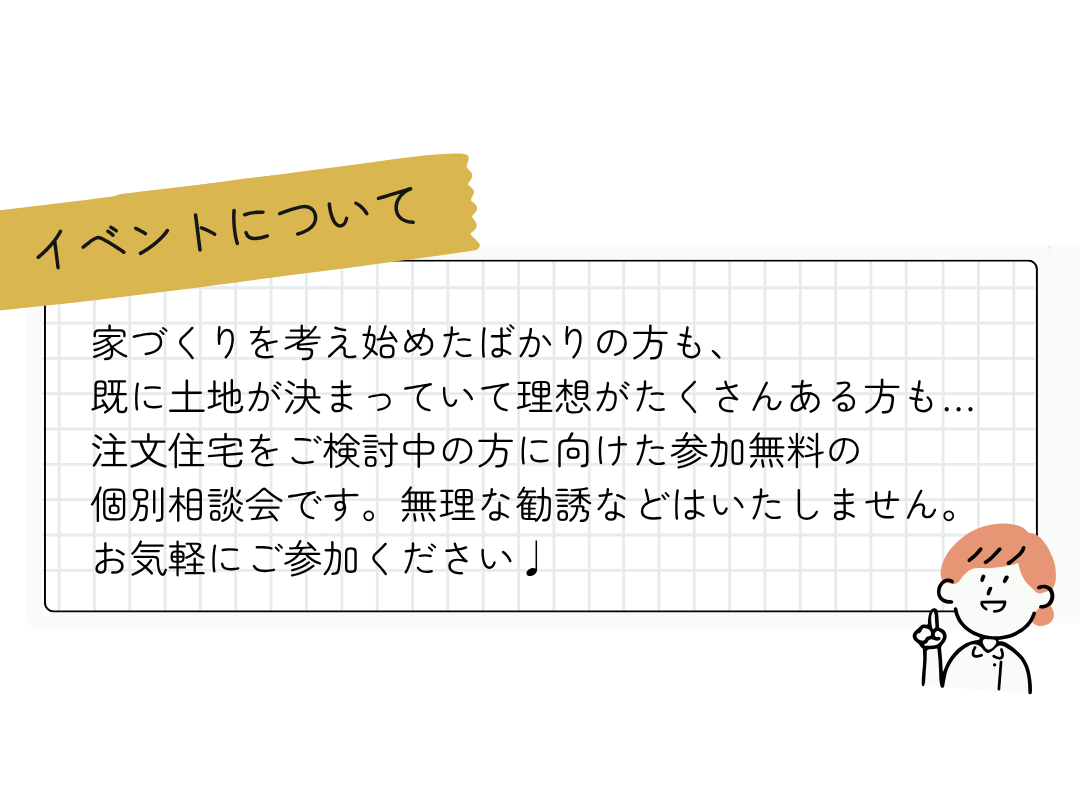 イベントについて
家づくりを考え始めたばかりの方も、
既に土地が決まっていて理想がたくさんある方も…
注文住宅をご検討中の方に向けた参加無料の
個別相談会です。無理な勧誘などはいたしません。
お気軽にご参加ください♩